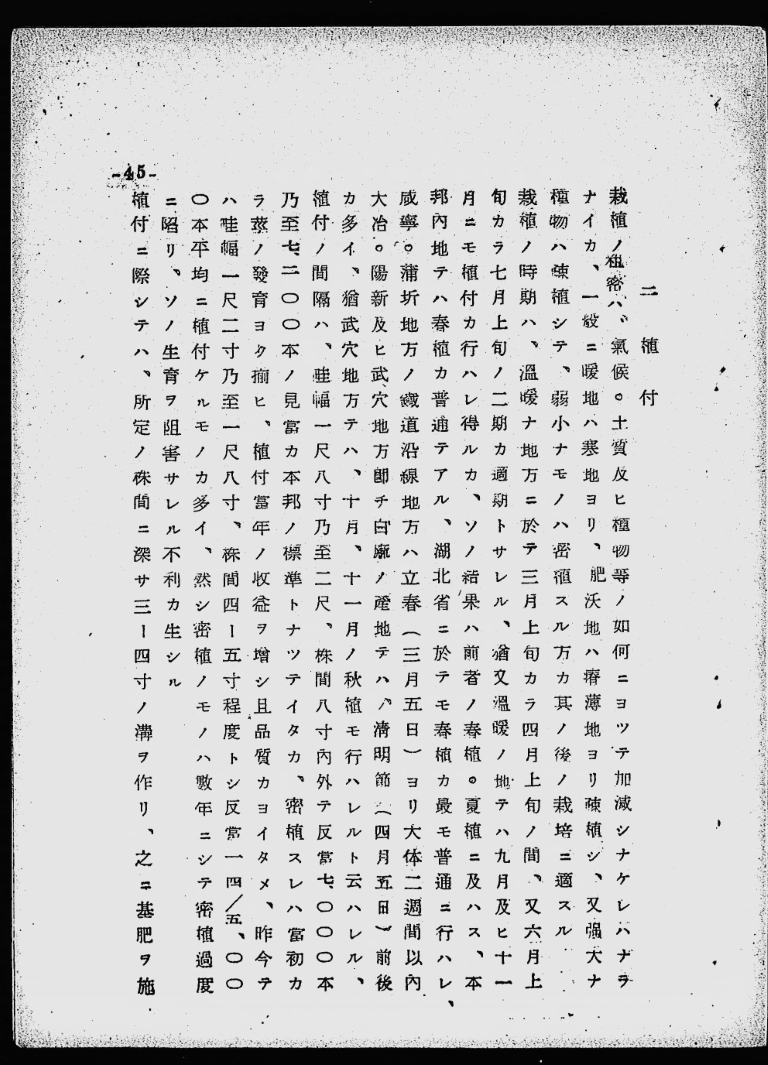 二 植付
栽植ノ粗密ハ、氣候。土質及ヒ種物等ノ如何ニヨツテ加減シナケレハナラ
ナイカ、一般ニ暖地ハ寒地ヨリ、肥沃地ハ瘠薄地ヨリ疎植シ、又强大ナ
種物ハ疎植シテ、弱小ナモノハ密植スル方カ其ノ後ノ栽培ニ適スル
栽植ノ時期ハ、溫暖ナ地方ニ於テ三月上旬カラ四月上旬ノ間、又六月上
旬カラ七月上旬ノ二期カ適期トサレル、猶又溫暖ノ地テハ九月及ヒ十一
月ニモ植付カ行ハレ得ルカ、ソノ結果ハ前者ノ春植。夏植ニ及ハス、本
邦內地テハ春植カ普通テアル、湖北省ニ於テモ春植カ最モ普通ニ行ハレ、
咸寧。蒲圻地方ノ鐵道沿線地方ハ立春(三月五日)ヨリ大体二週間以內
大冶。陽新及ヒ武穴地方卽チ白廊ノ產地テハ、淸明節(四月五日)前後
カ多イ、猶武穴地方テハ、十月、十一月ノ秋植モ行ハレルト云ハレル、
植付ノ間隔ハ、畦幅一尺八寸乃至二尺、株間八寸內外テ反當七、〇〇〇本
乃至七、二〇〇本ノ見當カ本邦ノ標準トナツテイタカ、密植スレハ當初カ
ラ莖ノ發育ヨク揃ヒ、植付當年ノ收益ヲ增シ且品質カヨイタメ、昨今テ
ハ畦幅一尺二寸乃至一尺八寸、株間四ー五寸程度トシ反當一四/五、〇〇
〇本平均ニ植付ケルモノカ多イ、然シ密植ノモノハ數年ニシテ密植過度
ニ陷リ、ソノ生育ヲ阻害サレル不利カ生シル
植付ニ際シテハ、所定ノ株間ニ深サ三ー四寸ノ溝ヲ作リ、之ニ基肥ヲ施
-45-